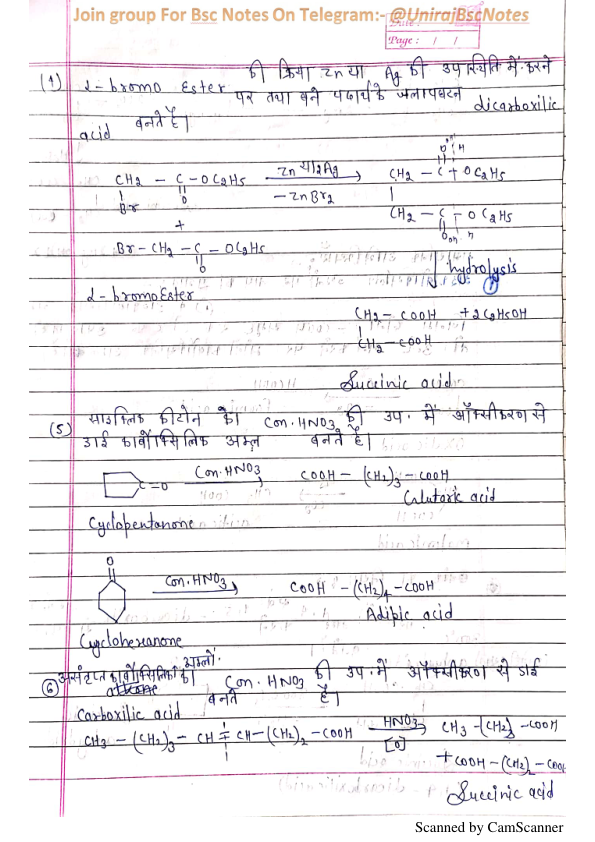 Join group For Bsc Notes On Telegram:- @UnirajBscNotes
Date :
Page : / /
(4) α-bromo Ester की क्रिया Zn या Ag की उपस्थिति में करने
पर तथा बने पदार्थ के जलापघटन dicarboxilic
acid बनते हैं।
CH2 – C – OC2H5 Zn या 2Ag CH2 – C + OC2H5
Br O – ZnBr2
+ CH2 – C – OC2H5
Br – CH2 – C – OC2H5
O
hydrolysis
α-bromo Ester
CH2 – COOH + 2C2H5OH
CH2 – COOH
Succinic acid
(5) साइक्लिक कीटोन का Con. HNO3 की उप. में ऑक्सीकरण से
डाई कार्बोक्सिलिक अम्ल बनते हैं।
C=O Con. HNO3 COOH – (CH2)3 – COOH
Glutaric acid
Cyclopentanone
O
Con. HNO3 COOH – (CH2)4 – COOH
Adipic acid
Cyclohexanone
(6) असंतृप्त कार्बोक्सिलिक अम्लों का Con. HNO3 की उप. में ऑक्सीकरण से डाई
Carboxilic acid बनते हैं।
CH3 – (CH2)3 – CH = CH – (CH2)2 – COOH HNO3 [O] CH3 – (CH2)3 – COOH
+ COOH – (CH2)2 – COOH
Succinic acid
Scanned by CamScanner